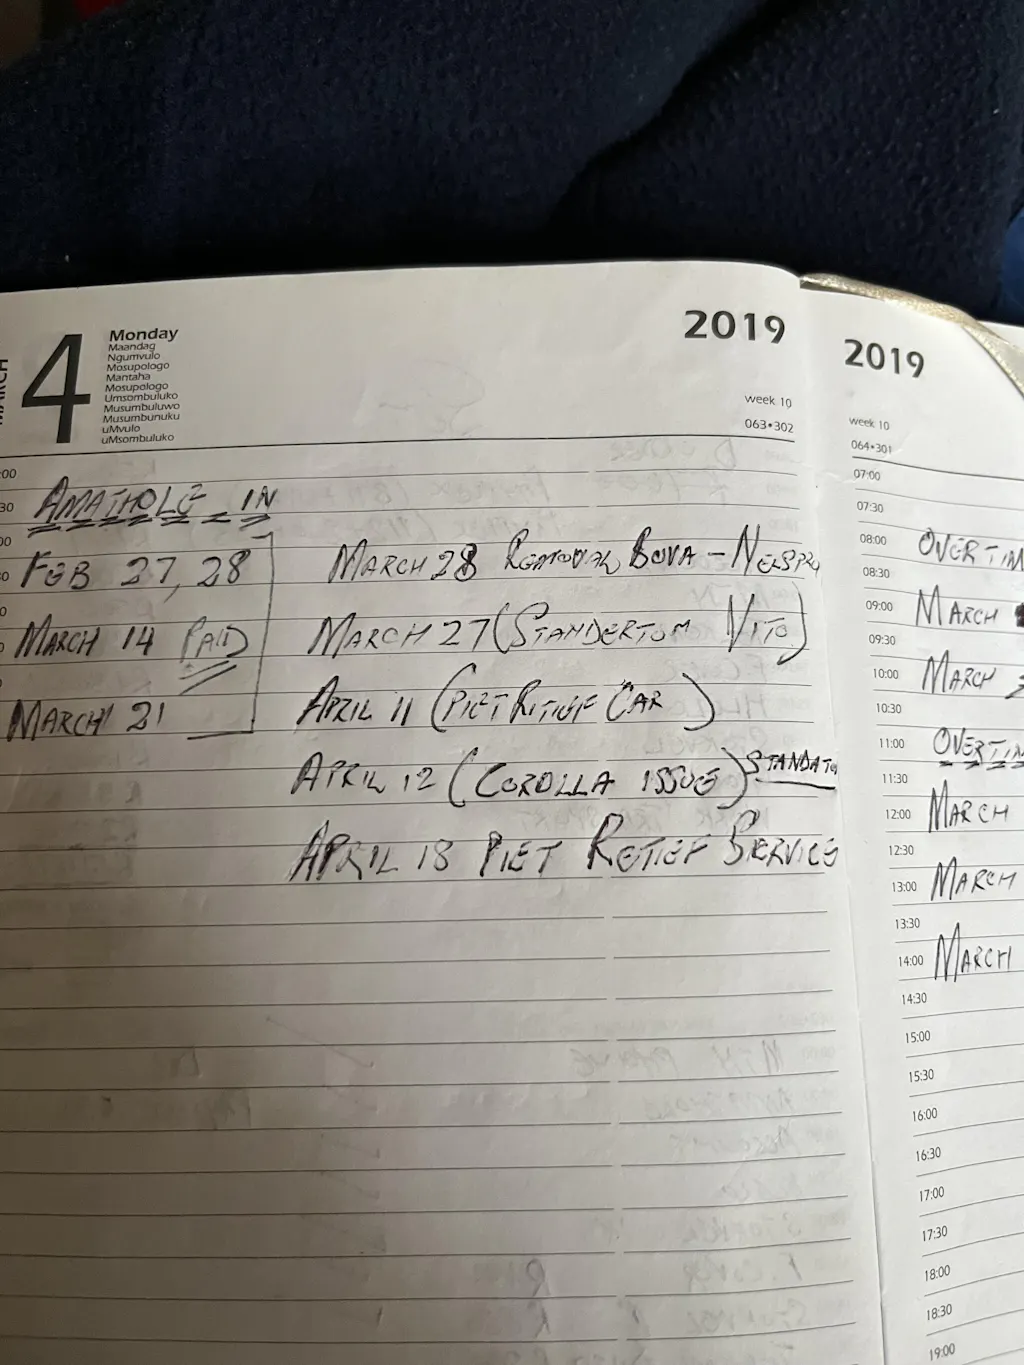 MARCH
4
Monday
Maandag
Ngumvulo
Mosupologo
Mantaha
Mosupologo
Umsombuluko
Musumbuluwo
Musumbunuku
uMvulo
uMsombuluko
2019
week 10
063•302
AMATHOLE IN
FEB 27, 28
MARCH 14 PAID
MARCH 21
MARCH 28 REMOVAL BOVA - NELSPRU
MARCH 27 (STANDERTOM VITO)
APRIL 11 (PIET RITIEF CAR)
APRIL 12 (COROLLA ISSUE) STANDATO
APRIL 18 PIET RETIEF SERVICE
2019
week 10
064•301
07:00
07:30
08:00 OVERTIM
08:30
09:00 MARCH
09:30
10:00 MARCH
10:30
11:00 OVERTIM
11:30
12:00 MARCH
12:30
13:00 MARCH
13:30
14:00 MARCH
14:30
15:00
15:30
16:00
16:30
17:00
17:30
18:00
18:30
19:00